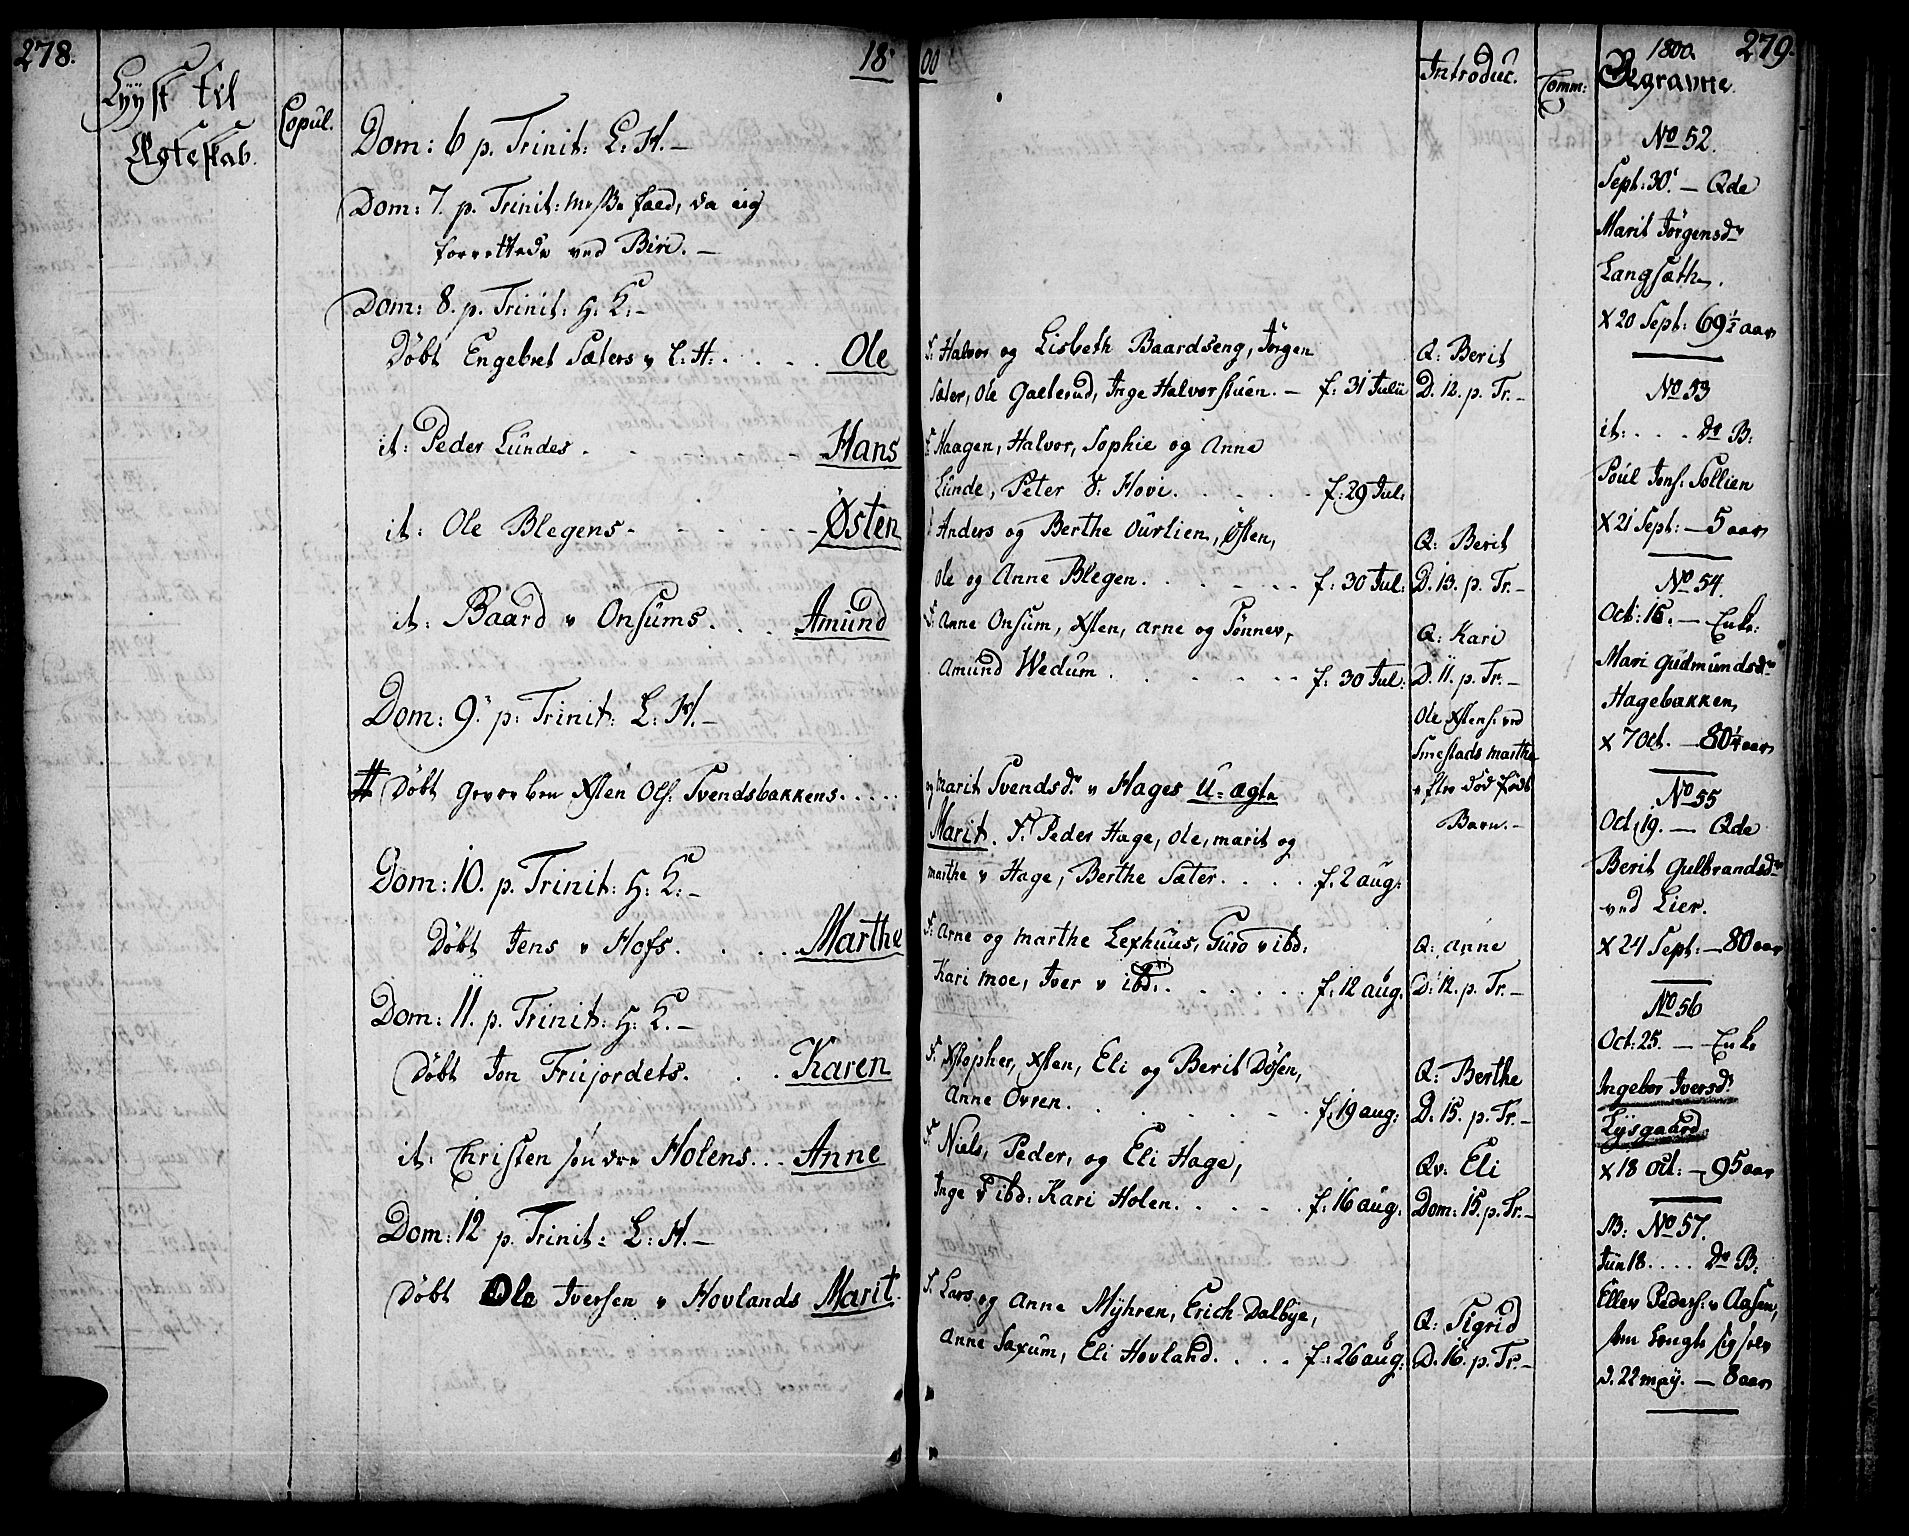 278.
Lyyst til
Ægteskab.
Copul.
18
Dom: 6 p. Trinit: L: H. –
Dom: 7. p. Trinit: Messe faed, da eig
forrettede ved Biri. –
Dom: 8. p. Trinit: H: K: –
Døbt Engebret Sæters v L: H: . . . . Ole
it: Peder Lundes . . . . . Hans
it: Ole Blegens . . . . . Østen
it: Baard v Onsums. . . Amund
Dom: 9. p: Trinit: L: H. –
# Døbt Xsten Ols: Svendsbakkens. . . . .
Dom: 10. p. Trinit: H: K: –
Døbt Jens v Hofs. . . . . Marthe
Dom: 11. p. Trinit: H: K. –
Døbt Jon Frujordets. . . . Karen
it: Christen søndre Holens. . . Anne
Dom: 12 p. Trinit: L: H. –
Døbt Ole Iversen v Hovlands Marit.
00
F: Halvor og Lisbeth Baardseng, Jørgen
Sæter, Ole Gaeterud, Inge Halvorstuen. – f: 31 Julii
F: Haagen, Halvor, Sophie og Anne
Lunde, Peter v: Hovi. . . . . . f: 29 Jul:
F: Anders og Berthe Ourlien, Østen,
Ole og Anne Blegen. . . . . . f: 30 Jul:
F: Anne Onsum, Xsten, Arne og Tønner,
Amund Wedum . . . . . . f: 30 Jul:
og Marit Svendsdr v Hages U-ægte
Marit. F: Peder Hage, Ole, Marit og
Marthe v Hage, Berthe Sæter. . . . . f: 2 aug:
F: Arne og Marthe Lexhuus, Guro v ibd:
Kari Moe, Iver v ibd: . . . . . . f: 12 aug:
F: Xstopher, Xsten, Eli og Berit Døsen,
Anne Ovren. . . . . . . . f: 19 aug:
Niels, Peder, og Eli Hage,
Inge v ibd: Kari Holen. . . . . . f: 16 aug:
F: Lars og Anne Myhren, Erich Dalbye,
Anne Saxum, Eli Hovland. . . . . f: 26 aug:
Introduc.
Q: Berit
D. 12. p. Tr. –
Q: Berit
D. 13. p. Tr. –
Q: Kari
D. 11. p. Tr. –
Ole Xstens: ved
Smestads Marthe
efter død født
Barn. –
Q: Anne
D: 12. p. Tr. –
Q: Berthe
D. 15. p. Tr. –
Qv. Eli
Dom: 15. p. Tr. –
Q: Sigrid
D. 16. p. Tr. –
Comm:
1800. 279.
Begravne.
No 52.
Sept: 30. – Qde
Marit Jörgensdr
Langsæth.
X 20 Sept: 69½ aar
No 53
it: . . . do B:
Poul Jons: Sollien
X 21 Sept: – 5 aar
No 54.
Oct: 16. – Enke:
Mari Gudmundsdr
Hagebakken,
X 7 Oct. – 80¼ aar
No 55
Oct: 19. – Qde
Berit Gulbrandsdr
ved Lier.
X 24 Sept: – 80 aar
No 56
Oct: 25. – Enke
Ingebor Iversdr
Lysgaard.
X 18 Oct: – 95 aar
NB: No 57.
Jun 18. . . . do B:
Ellev Peders: v Aasen,
d. 22 may. – 8 aar